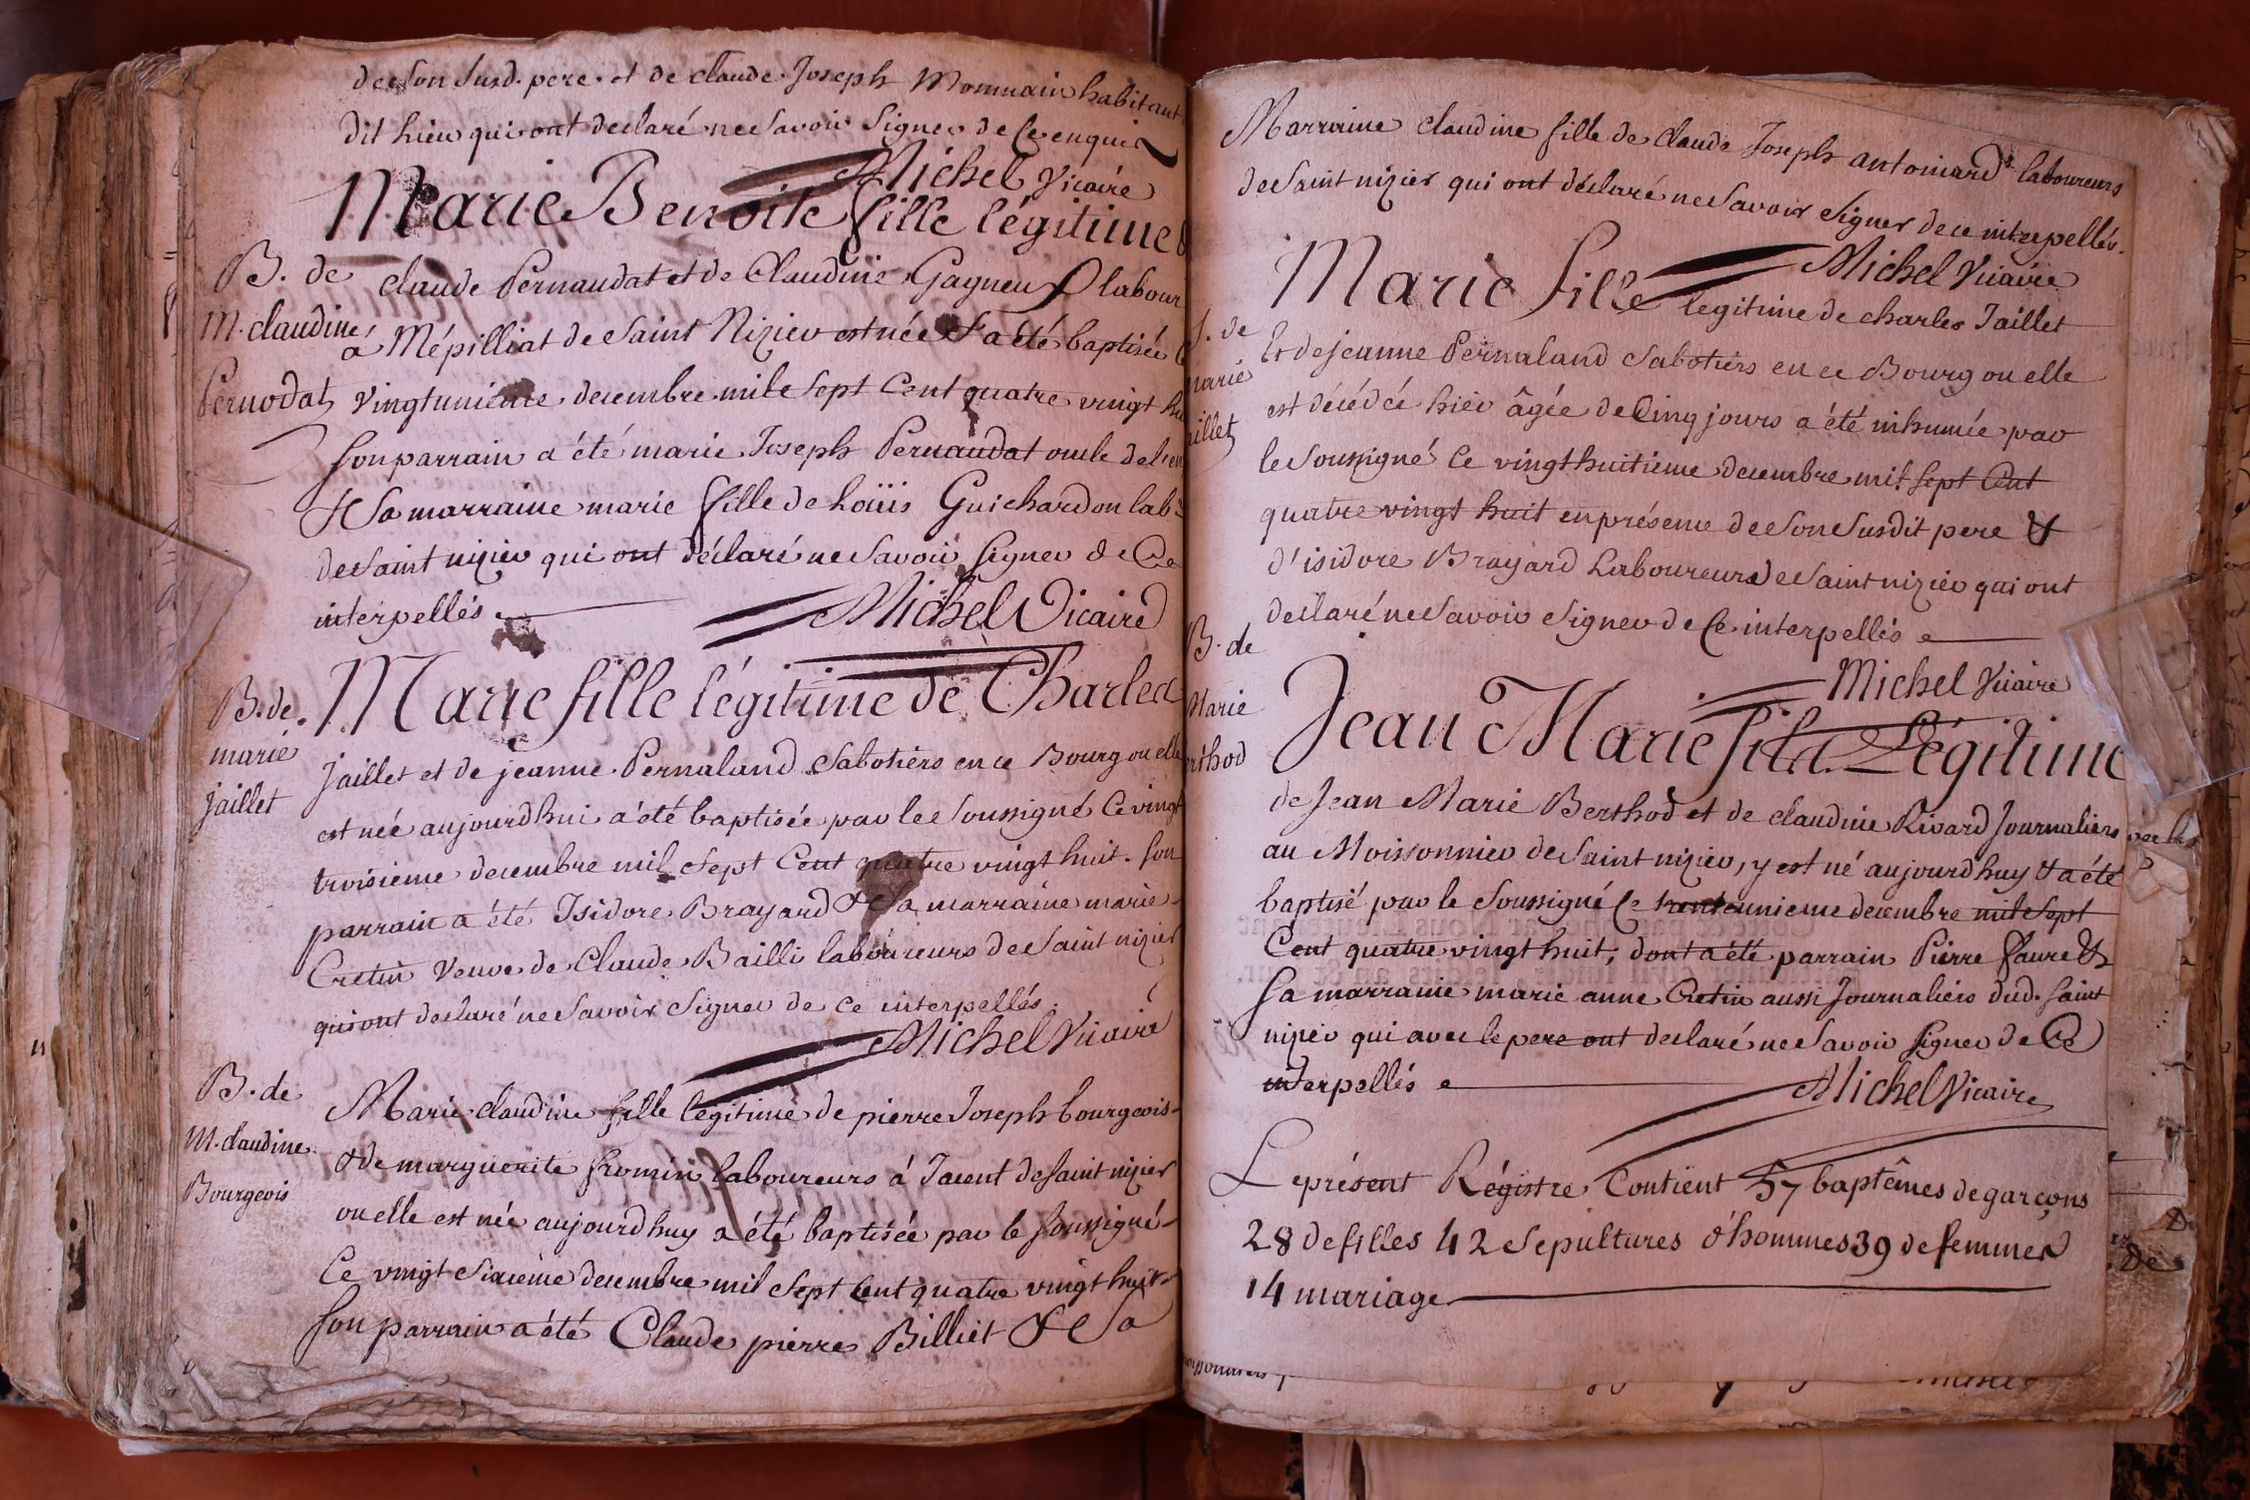 de son susd. pere et de claude Joseph Momnain habitant
dit lieu qui ont declaré ne savoir signer de ce enquis
Michel Vicaire
Marie Benoite fille légitime
B. de
M. claudine
Pernodat
claude Pernaudat et de Claudine Gagneux labour
á Mépilliat de Saint Nizier est née & a été baptisée
vingtunième decembre mile sept Cent quatre vingt hu
son parrain a été marie Joseph Pernaudat oncle de l'en
& sa marraine marie fille de Loüis Guichardon lab.
de saint nizier qui ont déclaré ne savoir signer de Ce
interpellés
Michel Vicaire
B. de
marie
jaillet
Marie fille légitime de Charles
jaillet et de jeanne Pernaland Sabotiers en ce Bourg ou elle
est née aujourdhui a été baptisée par le soussigné Ce vingt
troisieme decembre mil sept Cent quatre vingt huit. son
parrain a été Isidore Brayard & sa marraine marie
Cretin veuve de Claude Bailli laboureurs de saint nizier
qui ont declaré ne savoir signer de ce interpellés.
Michel Vicaire
B. de
M. claudine
Bourgeois
Marie claudine fille légitime de pierre Joseph bourgeois
& de marguerite fromin laboureurs á Tacont de saint nizier
ou elle est née aujourdhuy a été baptisée par le soussigné
Ce vingt sixieme decembre mil sept Cent quatre vingt huit
son parrain a été Claude pierre Billiet & sa
Marraine claudine fille de claude Joseph antoinard laboureurs
de saint nizier qui ont déclaré ne savoir signer de ce interpellés.
Michel Vicaire
S. de
marie
aillet
Marie fille legitime de charles Jaillet
Et de jeanne Pernaland Sabotiers en ce Bourg ou elle
est décédcé hier âgée de Cinq jours a été inhumée par
le soussigné Ce vingt huitieme decembre mil sept Cent
quatre vingt huit en présence de son susdit pere &
d'isidore Brayard Laboureurs de saint nizier qui ont
declaré ne savoir signer de Ce interpellés
Michel Vicaire
B. de
Marie
erthod
Jean Marie fils Légitime
de Jean Marie Berthod et de claudine Rivard Journaliers
au Moissonnier de saint nizier, y est né aujourdhuy & a été
baptisé par le soussigné Ce trenteunieme decembre mil sept
Cent quatre vingt huit, dont a été parrain Pierre faure &
sa marraine marie anne Cretin aussi Journaliers dud. saint
nizier qui avec le pere ont declaré ne savoir signer de Ce
interpellés
Michel Vicaire
Le présent Régistre Contient 57 baptêmes de garçons
28 de filles 42 sepultures d'hommes 39 de femmes
14 mariage